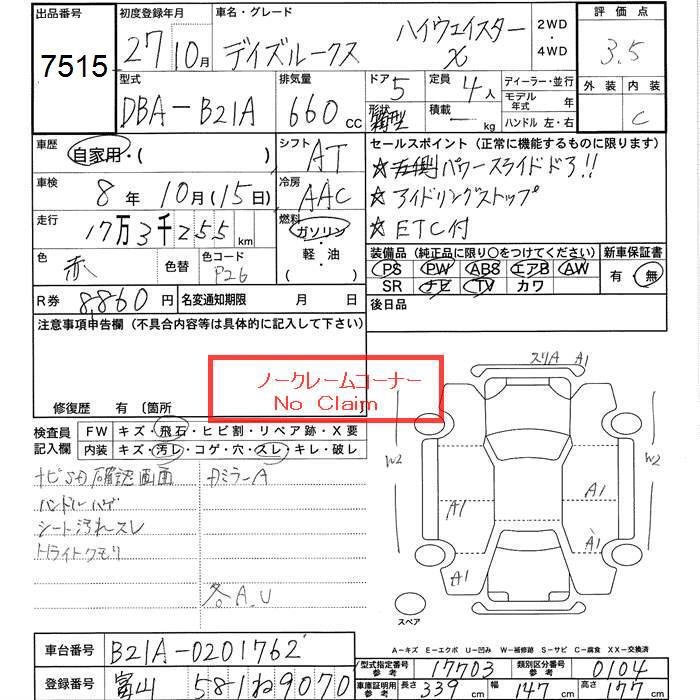 出品番号
7515
初度登録年月
27 10月
車名・グレード
デイズルークス ハイウェイスター X
2WD
・
4WD
評価点
3.5
外装 内装
C
型式
DBA-B21A
排気量
660 cc
ドア 5
形状 箱型
定員 4人
積載 - kg
ディーラー・並行
モデル年式 年
ハンドル 左・右
車歴
自家用・( )
シフト
AT
セールスポイント (正常に機能するものに限ります)
☆左側パワースライドドア!!
☆アイドリングストップ
☆ETC付
車検
8年 10月(15日)
冷房
AAC
走行
17万3千255 km
燃料
ガソリン
・
軽・油
( )
色 赤 色替
色コード
P26
装備品 (純正品に限り○をつけてください)
PS PW ABS エアB AW
SR ナビ TV カワ
新車保証書
有・無
R券 8,860円
名変通知期限 月 日
後日品
注意事項申告欄 (不具合内容等は具体的に記入して下さい)
ノークレームコーナー
No Claim
修復歴 有 〔箇所
検査員
記入欄
FW キズ・飛石・ヒビ割・リペア跡・X要
内装 キズ・汚レ・コゲ・穴・スレ・キレ・破レ
ナビSD確認画面
ハンドルハゲ
シート汚れスレ
トライトクモリ
カミラーA
各A.U
スリA A1
W2
W2
A1
A1
A1
A1
スペア
A-キズ E-エクボ U-凹み W-補修跡 S-サビ C-腐食 XX-交換済
車台番号 B21A-0201762
登録番号 富山 581 ね 9070
型式指定番号
参考
17703
類別区分番号
参考
0104
車庫証明用
参考
長さ 339 cm 幅 147 cm 高さ 177 cm